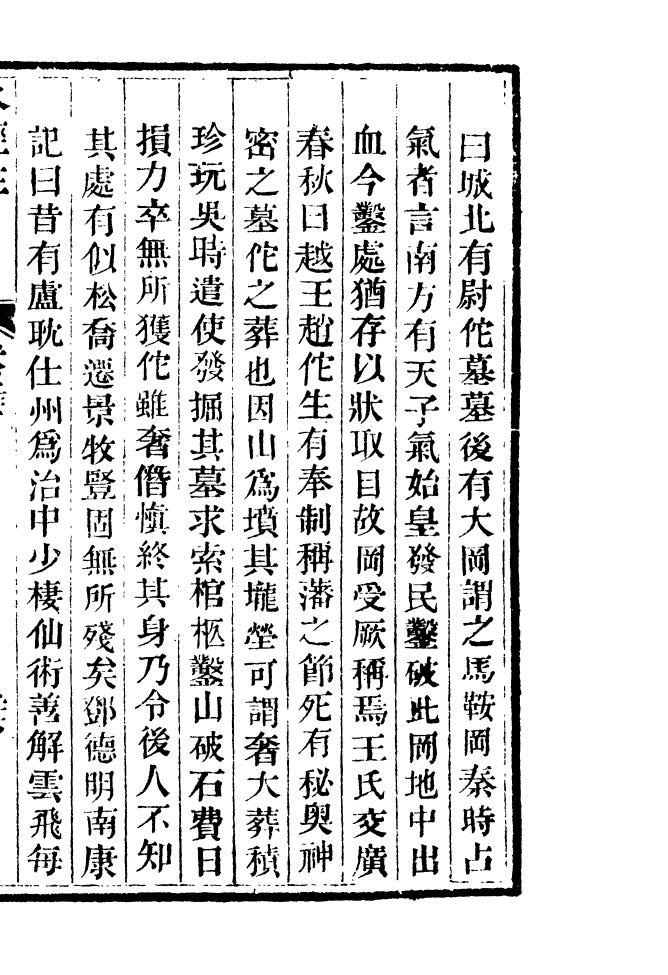 曰城北有尉佗墓墓後有大岡謂之馬鞍岡秦時占
氣者言南方有天子氣始皇發民鑿破此岡地中出
血今鑿處猶存以狀取目故岡受厥稱焉王氏交廣
春秋曰越王趙佗生有奉制稱藩之節死有秘奧神
密之墓佗之葬也因山爲墳其壠塋可謂奢大葬積
珍玩吳時遣使發掘其墓求索棺柩鑿山破石費日
損力卒無所獲佗雖奢僭慎終其身乃令後人不知
其處有似松喬遷景牧豎固無所殘矣鄧德明南康
記曰昔有盧耽仕州爲治中少棲仙術善解雲飛每